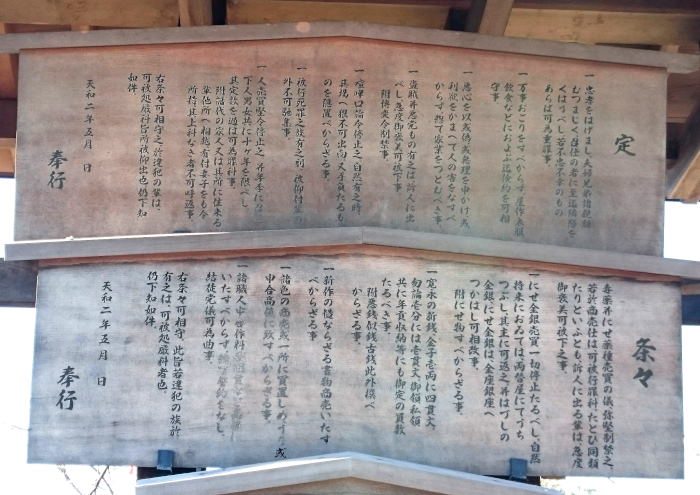 定
一 忠孝をはげまし夫婦兄弟諸親類
むつましく召仕の者に至迄憐愍を
くはうべし若不忠不孝のもの
あらば可為重罪事
一 万事おごりをすべからず屋作衣服
飲食などにおよぶ迄倹約を可相
守事
一 悪心を以或偽或無理を申かけ或
利欲をかまへて人の害をなすべ
からず惣て家業をつとむべき事
一 盗賊并悪党もの有之は訴人に出
べし急度御褒美可被下事
附博奕令制禁事
一 喧嘩口論令停止之自然有之時
其場へ猥不可出向又手負たるも
のを隠置べからざる事
一 被行死罪之族有之刻被仰付輩の
外不可馳集事
一 人売買堅令停止之并年季に
下人男女共に十ケ年を限べし
其定数を過は可為罪科事
附譜代の家人又は其所に住来る
輩他所へ相越有付妻子をも令
所持其上科なき者不可呼返事
右条々可相守之於違犯の輩は
可被処厳科旨所被仰出也仍下知
如件
天和二年五月 日
奉行
条々
一 毒薬并にせ薬種売買の儀弥堅制禁之
若於商売仕は可被行罪科たとひ同類
たりといふとも訴人に出る輩は急度
御褒美可被下之事
一 にせ金銀売買一切停止たるべし自然
持来におゐては両替屋にてうち
つぶし其主に可返之并はづしの
金銀にせ金銀は金座銀座へ
つかはし可相改事
附にせ物すべからざる事
一 寛永の新銭金子壱両に四貫文
勿論壱分には壱貫文御領私領
共に年貢収納等にも御定の員数
たるべき事
附悪銭似銭古銭此外撰べ
からざる事
一 新作の慥ならざる書物商売いたす
べからざる事
一 諸色の商売或一所に買置しめうり或
申合高値に致すべからざる事
一 諸職人申合作料
いたすべからず諸 誓約をなし
結徒党儀可為曲事
右条々可相守此旨若違犯の族於
有之は可被処厳科者也
仍下知如件
天和二年五月 日
奉行